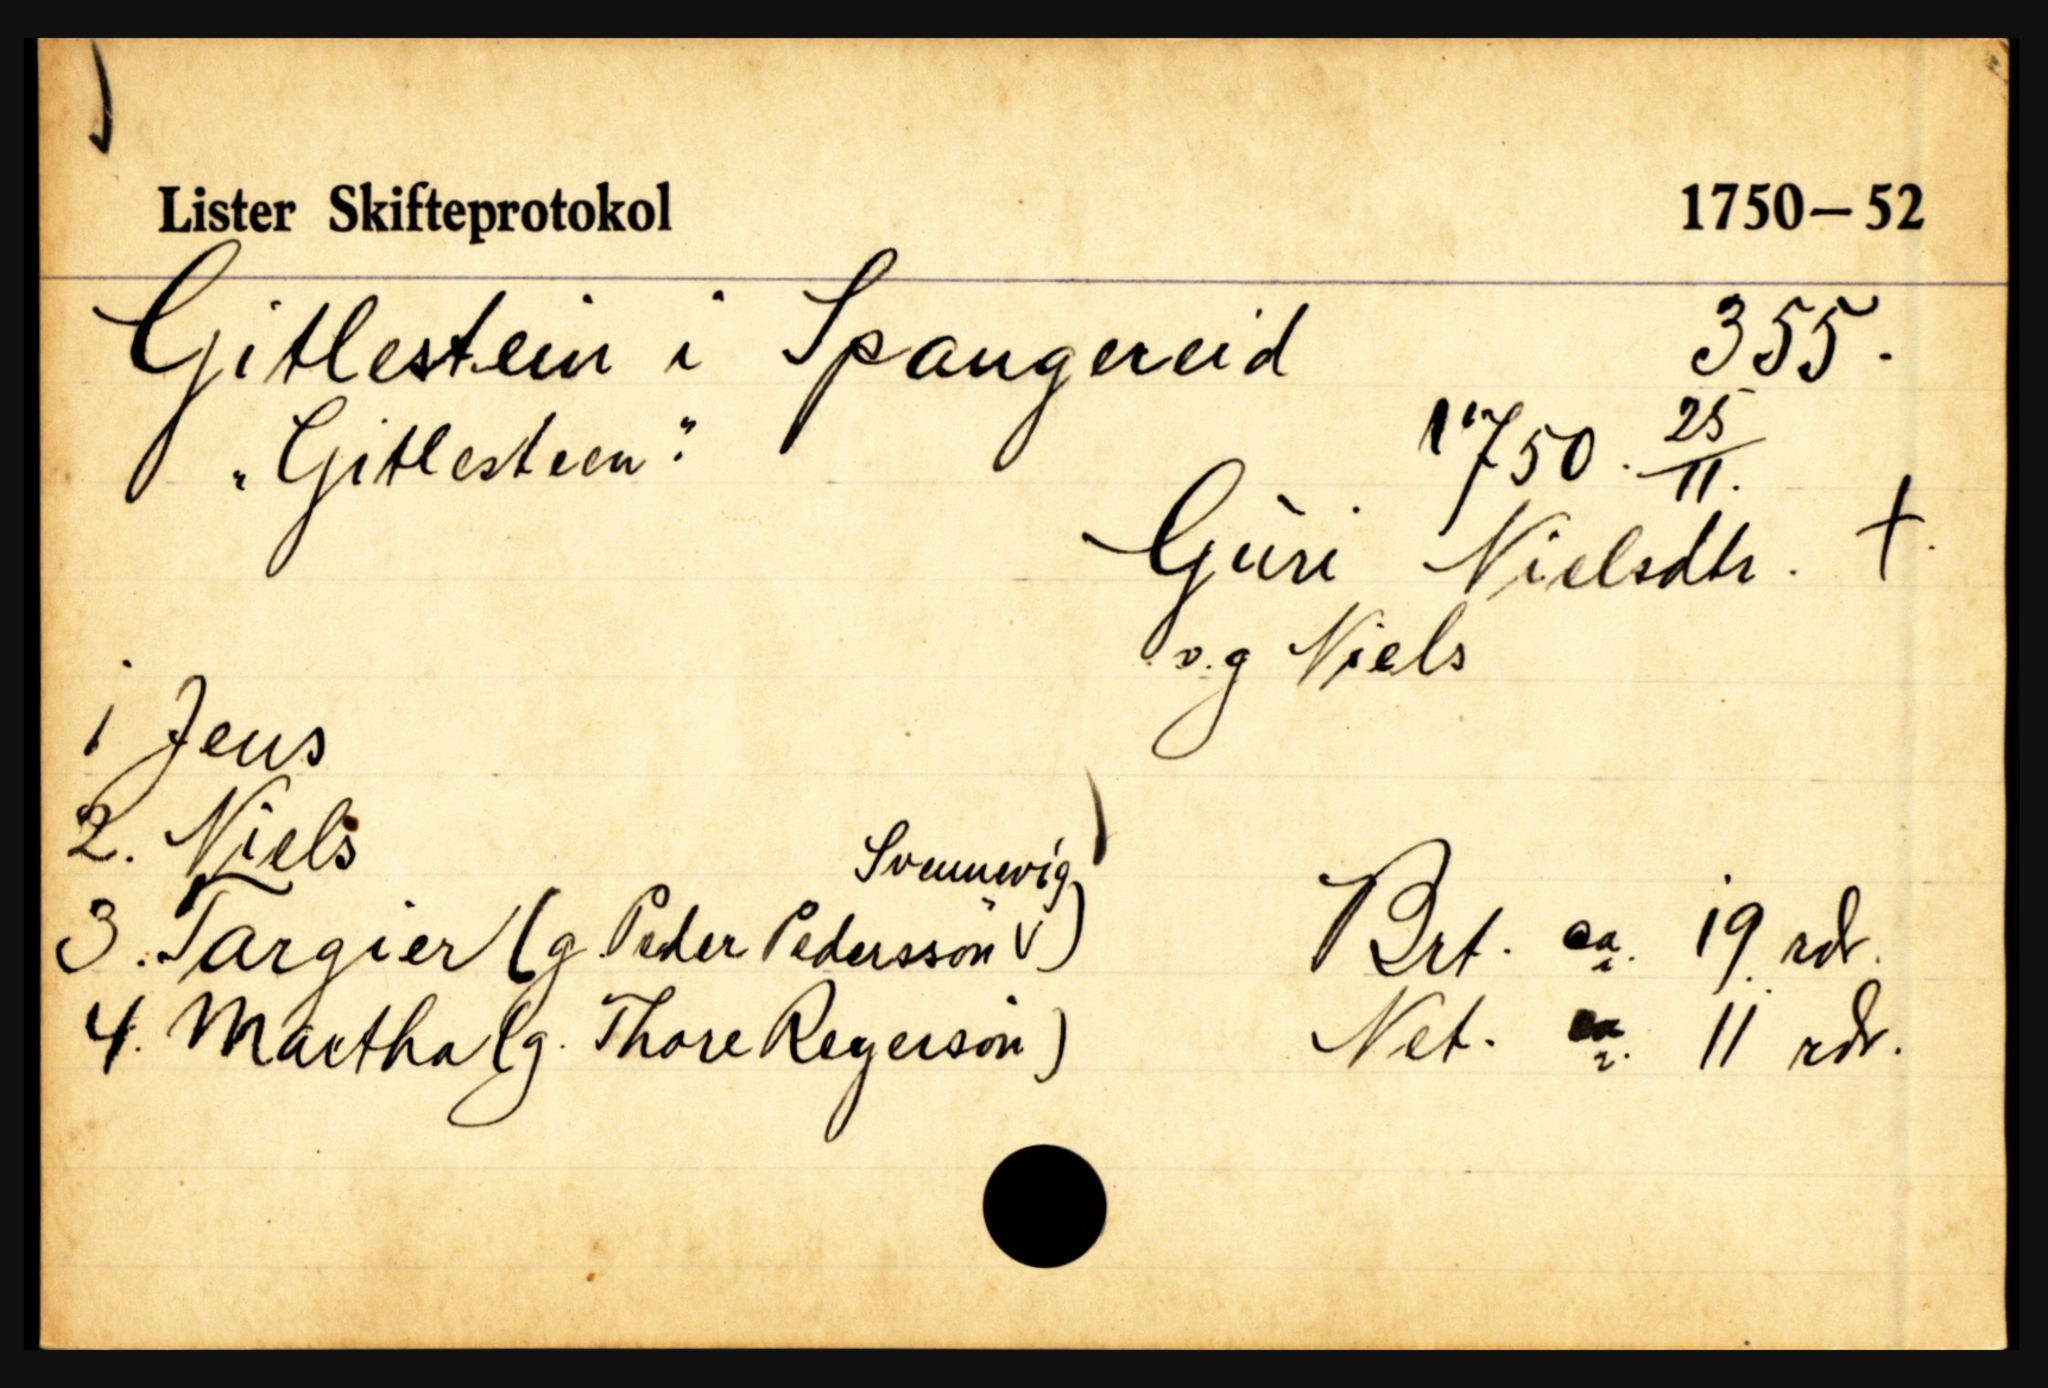 Lister Skifteprotokol 1750–52
Gitlestein i Spangereid 355.
"Gitlesteen". 1750. 25/11.
Guri Nielsdtr. †.
v. g Niels
1 Jens
2. Niels
Svennevig
3. Targier (g. Peder Pedersson v) Brt. ca. 19 rdr.
4. Martha (g. Thore Regerson) Net. ca. 11 rdr.